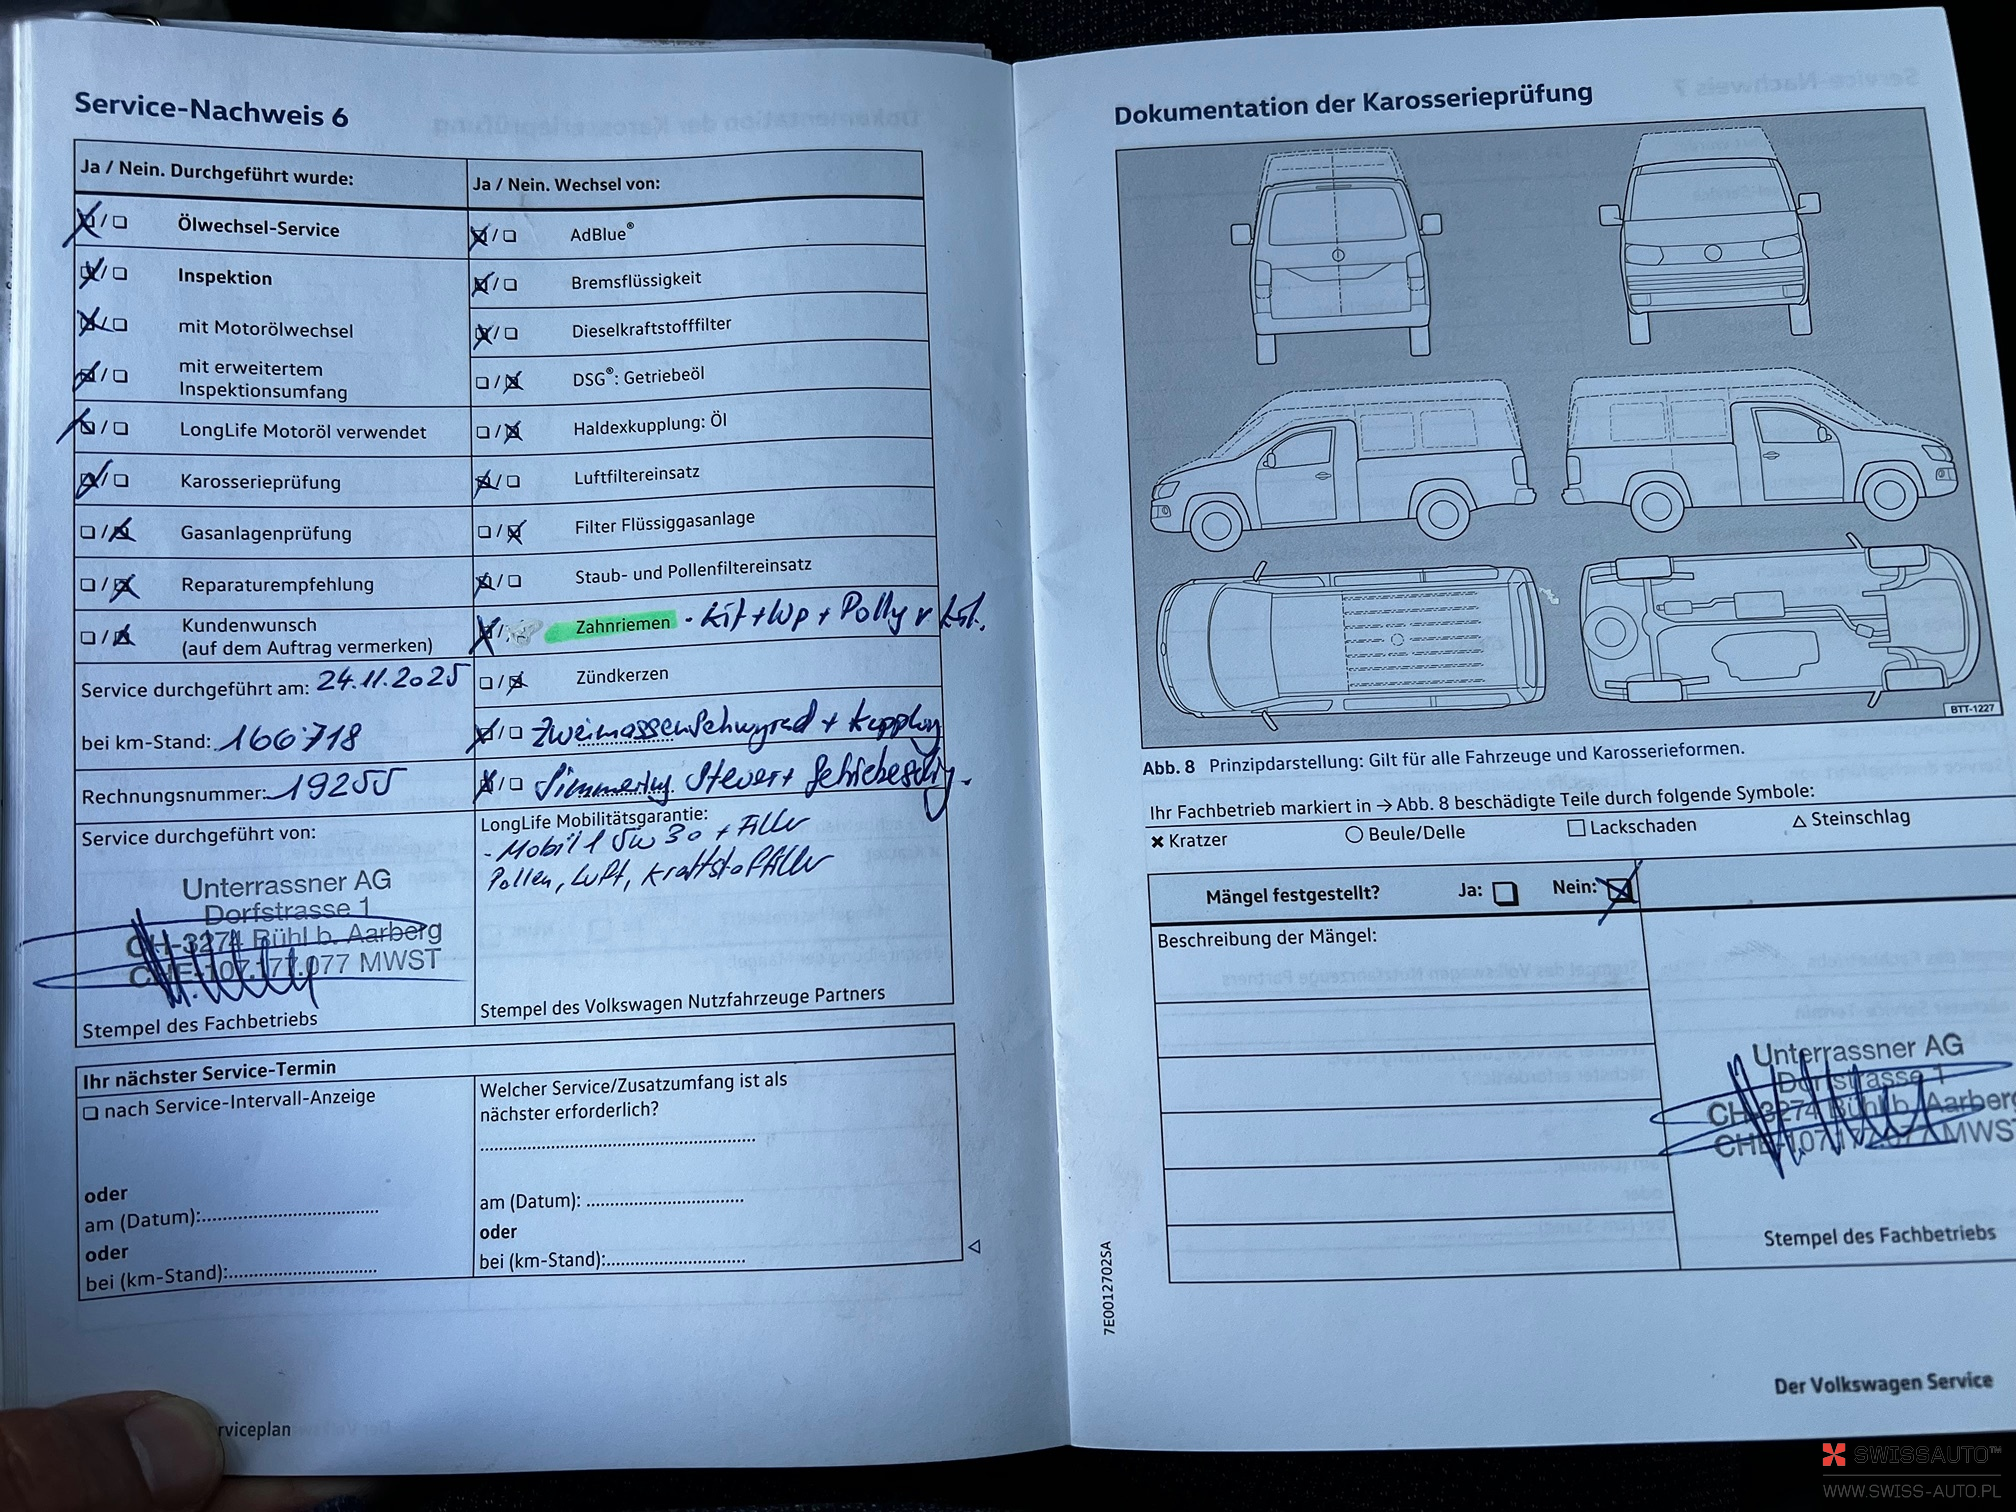 Service-Nachweis 6
Ja / Nein. Durchgeführt wurde:
Ölwechsel-Service
Inspektion
mit Motorölwechsel
mit erweitertem
Inspektionsumfang
LongLife Motoröl verwendet
Karosserieprüfung
Gasanlagenprüfung
Reparaturempfehlung
Kundenwunsch
(auf dem Auftrag vermerken)
Service durchgeführt am: 24.11.2025
bei km-Stand: 166718
Rechnungsnummer: 19255
Service durchgeführt von:
Unterrassner AG
Dorfstrasse 1
CH-3274 Bühl b. Aarberg
CHE-107.177.077 MWST
Stempel des Fachbetriebs
Ja / Nein. Wechsel von:
AdBlue®
Bremsflüssigkeit
Dieselkraftstofffilter
DSG®: Getriebeöl
Haldexkupplung: Öl
Luftfiltereinsatz
Filter Flüssiggasanlage
Staub- und Pollenfiltereinsatz
Zahnriemen - Kit + Wp + Polly v Kit.
Zündkerzen
Zweimassenschwungrad + Kupplung
Simmering Steuer + Getriebeseitig.
LongLife Mobilitätsgarantie:
- Mobil 1 5W30 + Filter
Pollen, Luft, Kraftstofffilter
Stempel des Volkswagen Nutzfahrzeuge Partners
Ihr nächster Service-Termin
nach Service-Intervall-Anzeige
oder
am (Datum):
oder
bei (km-Stand):
Welcher Service/Zusatzumfang ist als
nächster erforderlich?
am (Datum):
oder
bei (km-Stand):
rviceplan
Dokumentation der Karosserieprüfung
BTT-1227
Abb. 8 Prinzipdarstellung: Gilt für alle Fahrzeuge und Karosserieformen.
Ihr Fachbetrieb markiert in → Abb. 8 beschädigte Teile durch folgende Symbole:
Kratzer Beule/Delle Lackschaden Steinschlag
Mängel festgestellt? Ja: Nein:
Beschreibung der Mängel:
Unterrassner AG
Dorfstrasse 1
CH-3274 Bühl b. Aarberg
CHE-107.177.077 MWST
Stempel des Fachbetriebs
7E0012702SA
Der Volkswagen Service
SWISSAUTO™
WWW.SWISS-AUTO.PL